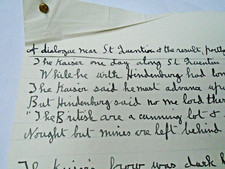 A dialogue near St Quentin & the result, portl
The Kaiser one day along St Quentin
While he with Hindenburg had lon
The Kaiser said he must advance up
But Hindenburg said no me lord ther
"The British are a cunning lot &
Nought but mines are left behind
The Kaiser's brow was dark